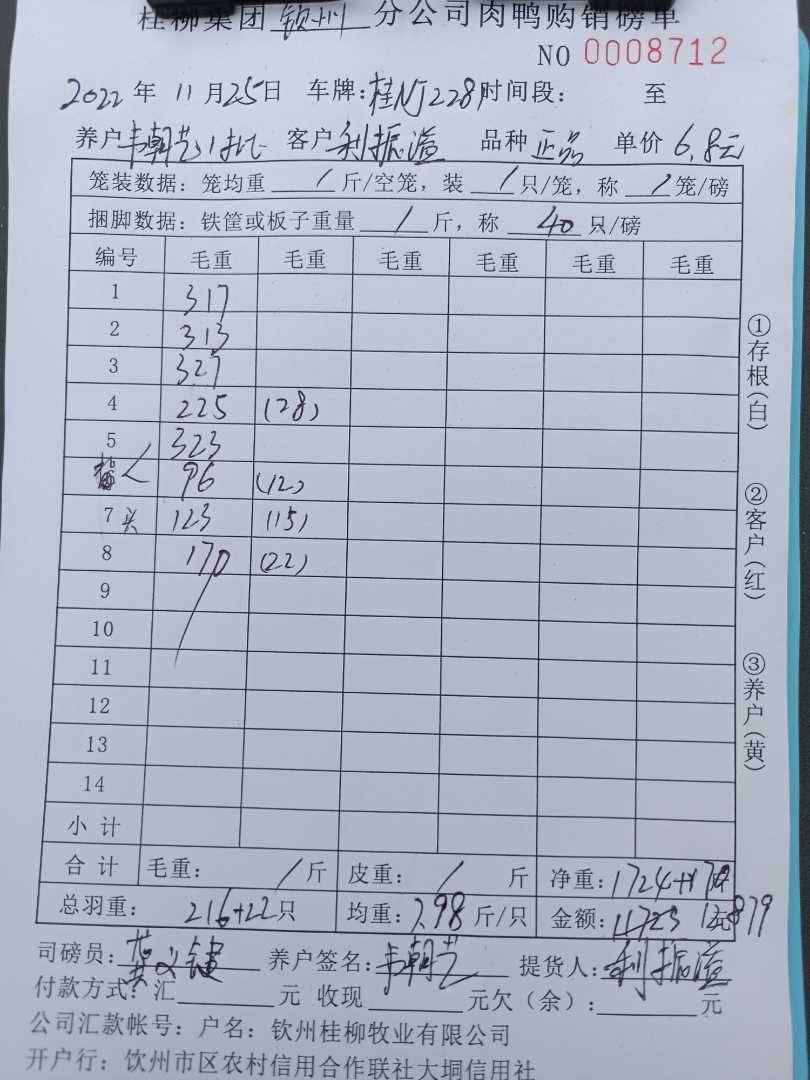 桂柳集团 钦州 分公司肉鸭购销磅单
NO 0008712
2022 年 11 月 25 日 车牌:桂NJ228 时间段: 至
养户 韦朝艺 客户 利振溢 品种 正品 单价 6.8元
笼装数据: 笼均重 / 斤/空笼, 装 / 只/笼, 称 / 笼/磅
捆脚数据: 铁筐或板子重量 / 斤, 称 40 只/磅
编号 毛重 毛重 毛重 毛重 毛重 毛重
1 317
2 313
3 327
4 225 (28)
5 323
96 (12)
7 头 123 (15)
8 170 (22)
9
10
11
12
13
14
小 计
合 计 毛重: / 斤 皮重: / 斤 净重: 1724+170
总羽重: 216+22只 均重: 7.98 斤/只 金额: 11723 12879
司磅员: 黄义健 养户签名: 韦朝艺 提货人: 利振溢
付款方式: 汇 元 收现 元欠(余): 元
公司汇款帐号: 户名: 钦州桂柳牧业有限公司
开户行: 饮州市区农村信用合作联社大垌信用社
①存根(白)
②客户(红)
③养户(黄)